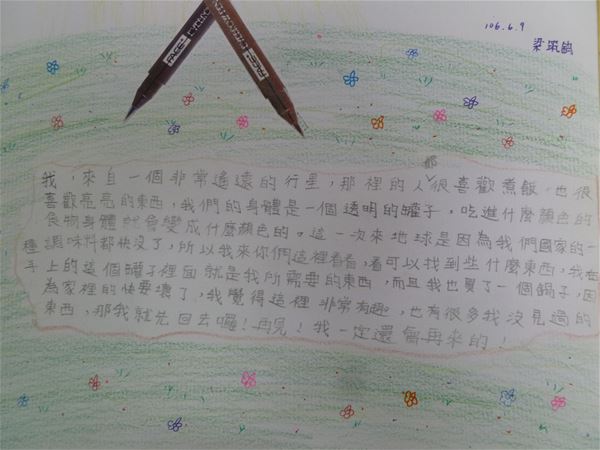 106.6.9
梁
我,來自一個非常遙遠的行星,那裡的人都很喜歡煮飯。也很
喜歡亮亮的東西,我們的身體是一個透明的罐子,吃進什麼顏色的
食物身體就會變成什麼顏色的。這一次來地球是因為我們國家的一
種調味料都快沒了,所以我來你們這裡看看,看可以找到些什麼東西,我在
手上的這個罐子裡面就是我所需要的東西,而且我也買了一個鍋子,因
為家裡的快要壞了,我覺得這裡非常有趣,也有很多我沒見過的
東西,那我就先回去囉!再見!我一定還會再來的!